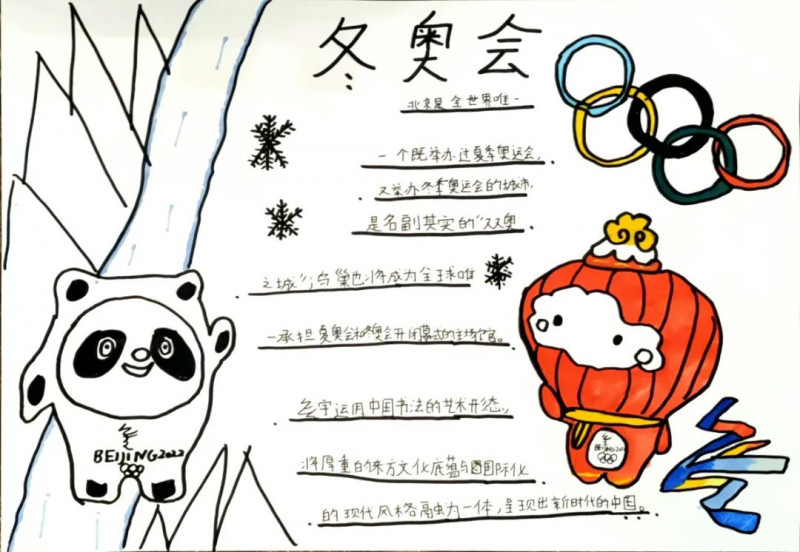 冬奥会
北京是全世界唯一
一个既举办过夏季奥运会,
又举办冬季奥运会的城市,
是名副其实的“双奥
之城”,鸟巢也将成为全球唯
一承担夏奥会和冬奥会开闭幕式的主场馆。
会字运用中国书法的艺术形态,
将厚重的东方文化底蕴与国际化
的现代风格融为一体,呈现出新时代的中国。
BEIJING 2022
BEIJING 2022